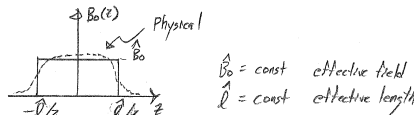 B₀(z)
Physical
B̂₀
B̂₀ = const effective field
ℓ̂ = const effective length
-ℓ̂/2 ℓ̂/2 z